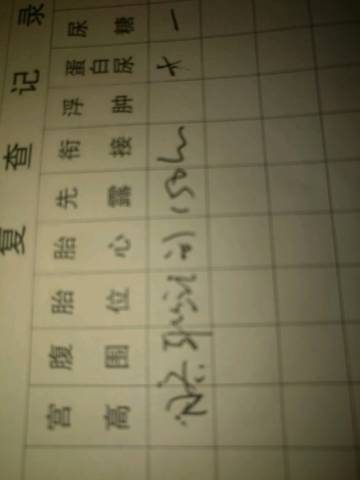 复查记录
宫高
腹围
胎位
胎心
先露
衔接
浮肿
蛋白尿
尿糖
+
－